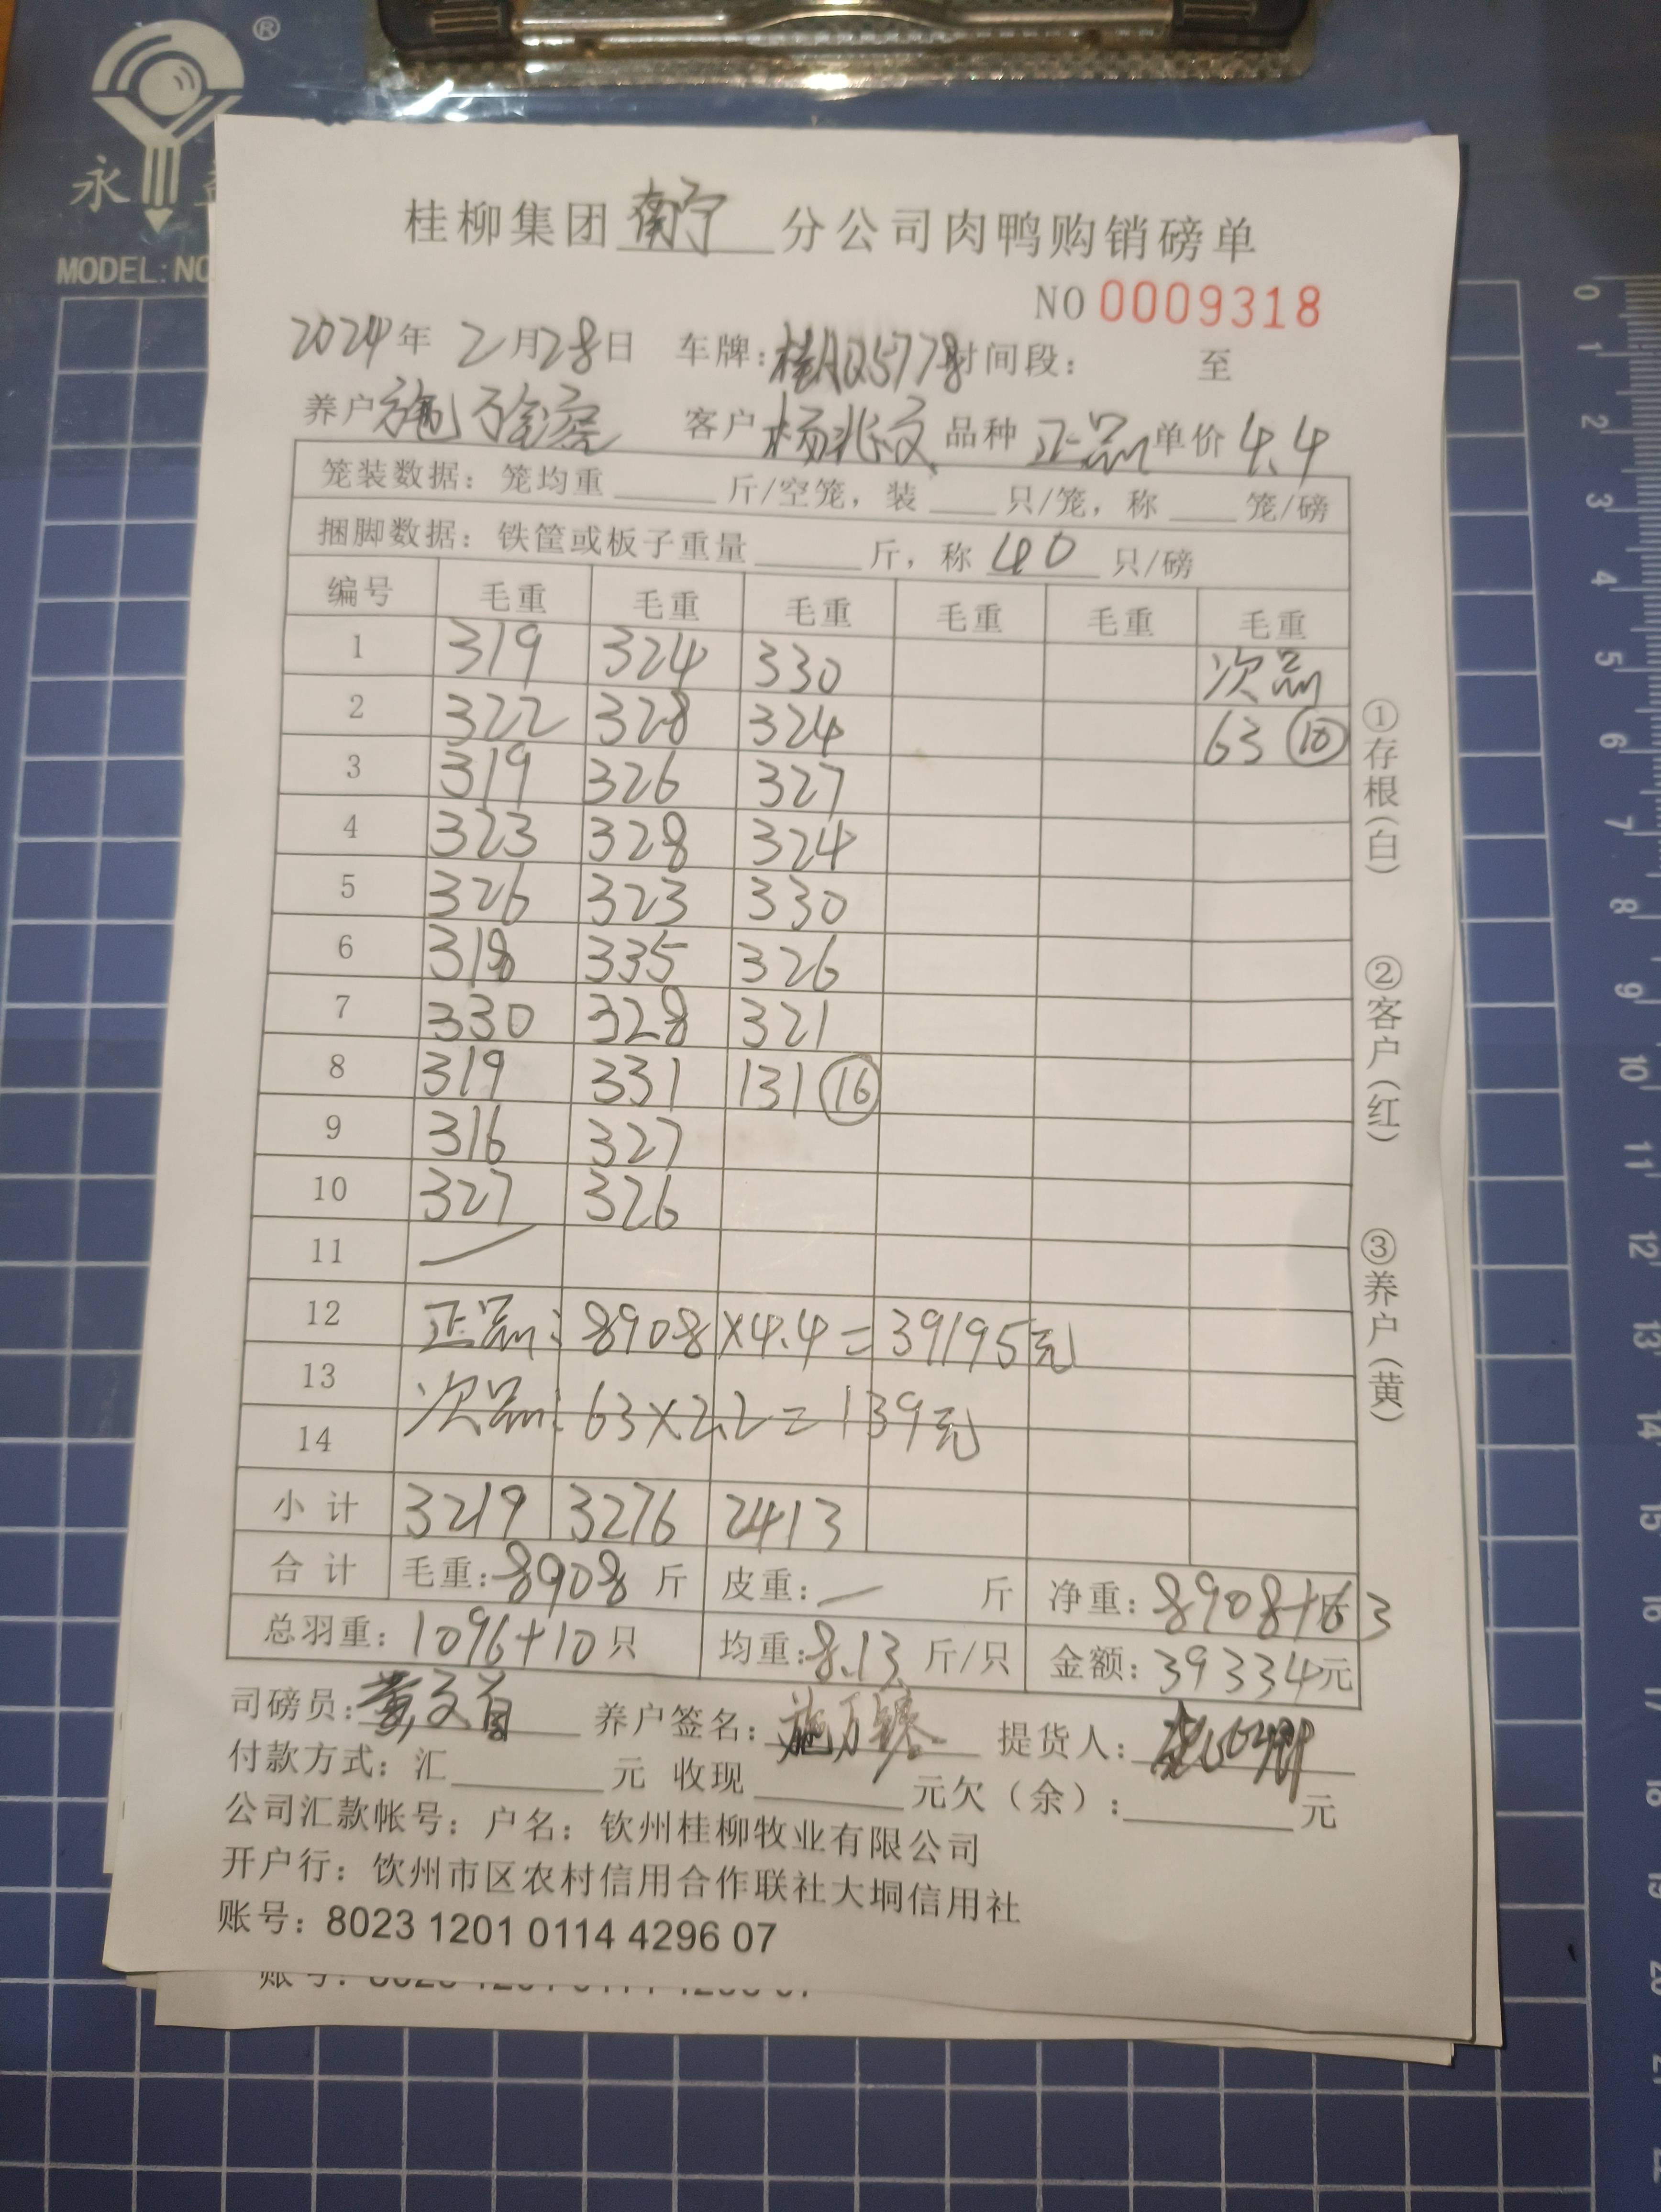 ®
永
MODEL:NO
桂柳集团南宁分公司肉鸭购销磅单
NO 0009318
2024年 2月28日 车牌:桂AQ5778 时间段: 至
养户 施 客户 杨兆文 品种 正品 单价 4.4
笼装数据: 笼均重 斤/空笼, 装 只/笼, 称 笼/磅
捆脚数据: 铁筐或板子重量 斤, 称 40 只/磅
编号 毛重 毛重 毛重 毛重 毛重 毛重
1 319 324 330 次品
2 322 328 324 63 ⑩
3 319 326 327
4 323 328 324
5 326 323 330
6 318 335 326
7 330 328 321
8 319 331 131 ⑯
9 316 327
10 327 326
11 —
12 正品: 8908×4.4=39195元
13 次品: 63×2.2=139元
14
小计 3219 3276 2413
合计 毛重:8908 斤 皮重:— 斤 净重:8908+63 斤
总羽重: 1096+10 只 均重:8.13 斤/只 金额: 39334元
司磅员: 黄文首 养户签名: 施万 提货人:
付款方式: 汇 元 收现 元欠(余): 元
公司汇款帐号: 户名: 钦州桂柳牧业有限公司
开户行: 饮州市区农村信用合作联社大垌信用社
账号: 8023 1201 0114 4296 07
①存根(白)
②客户(红)
③养户(黄)
0
1
2
3
4
5
6
7
8
9
10
11
12
13
14
15
16
17
18
19
20
21
22